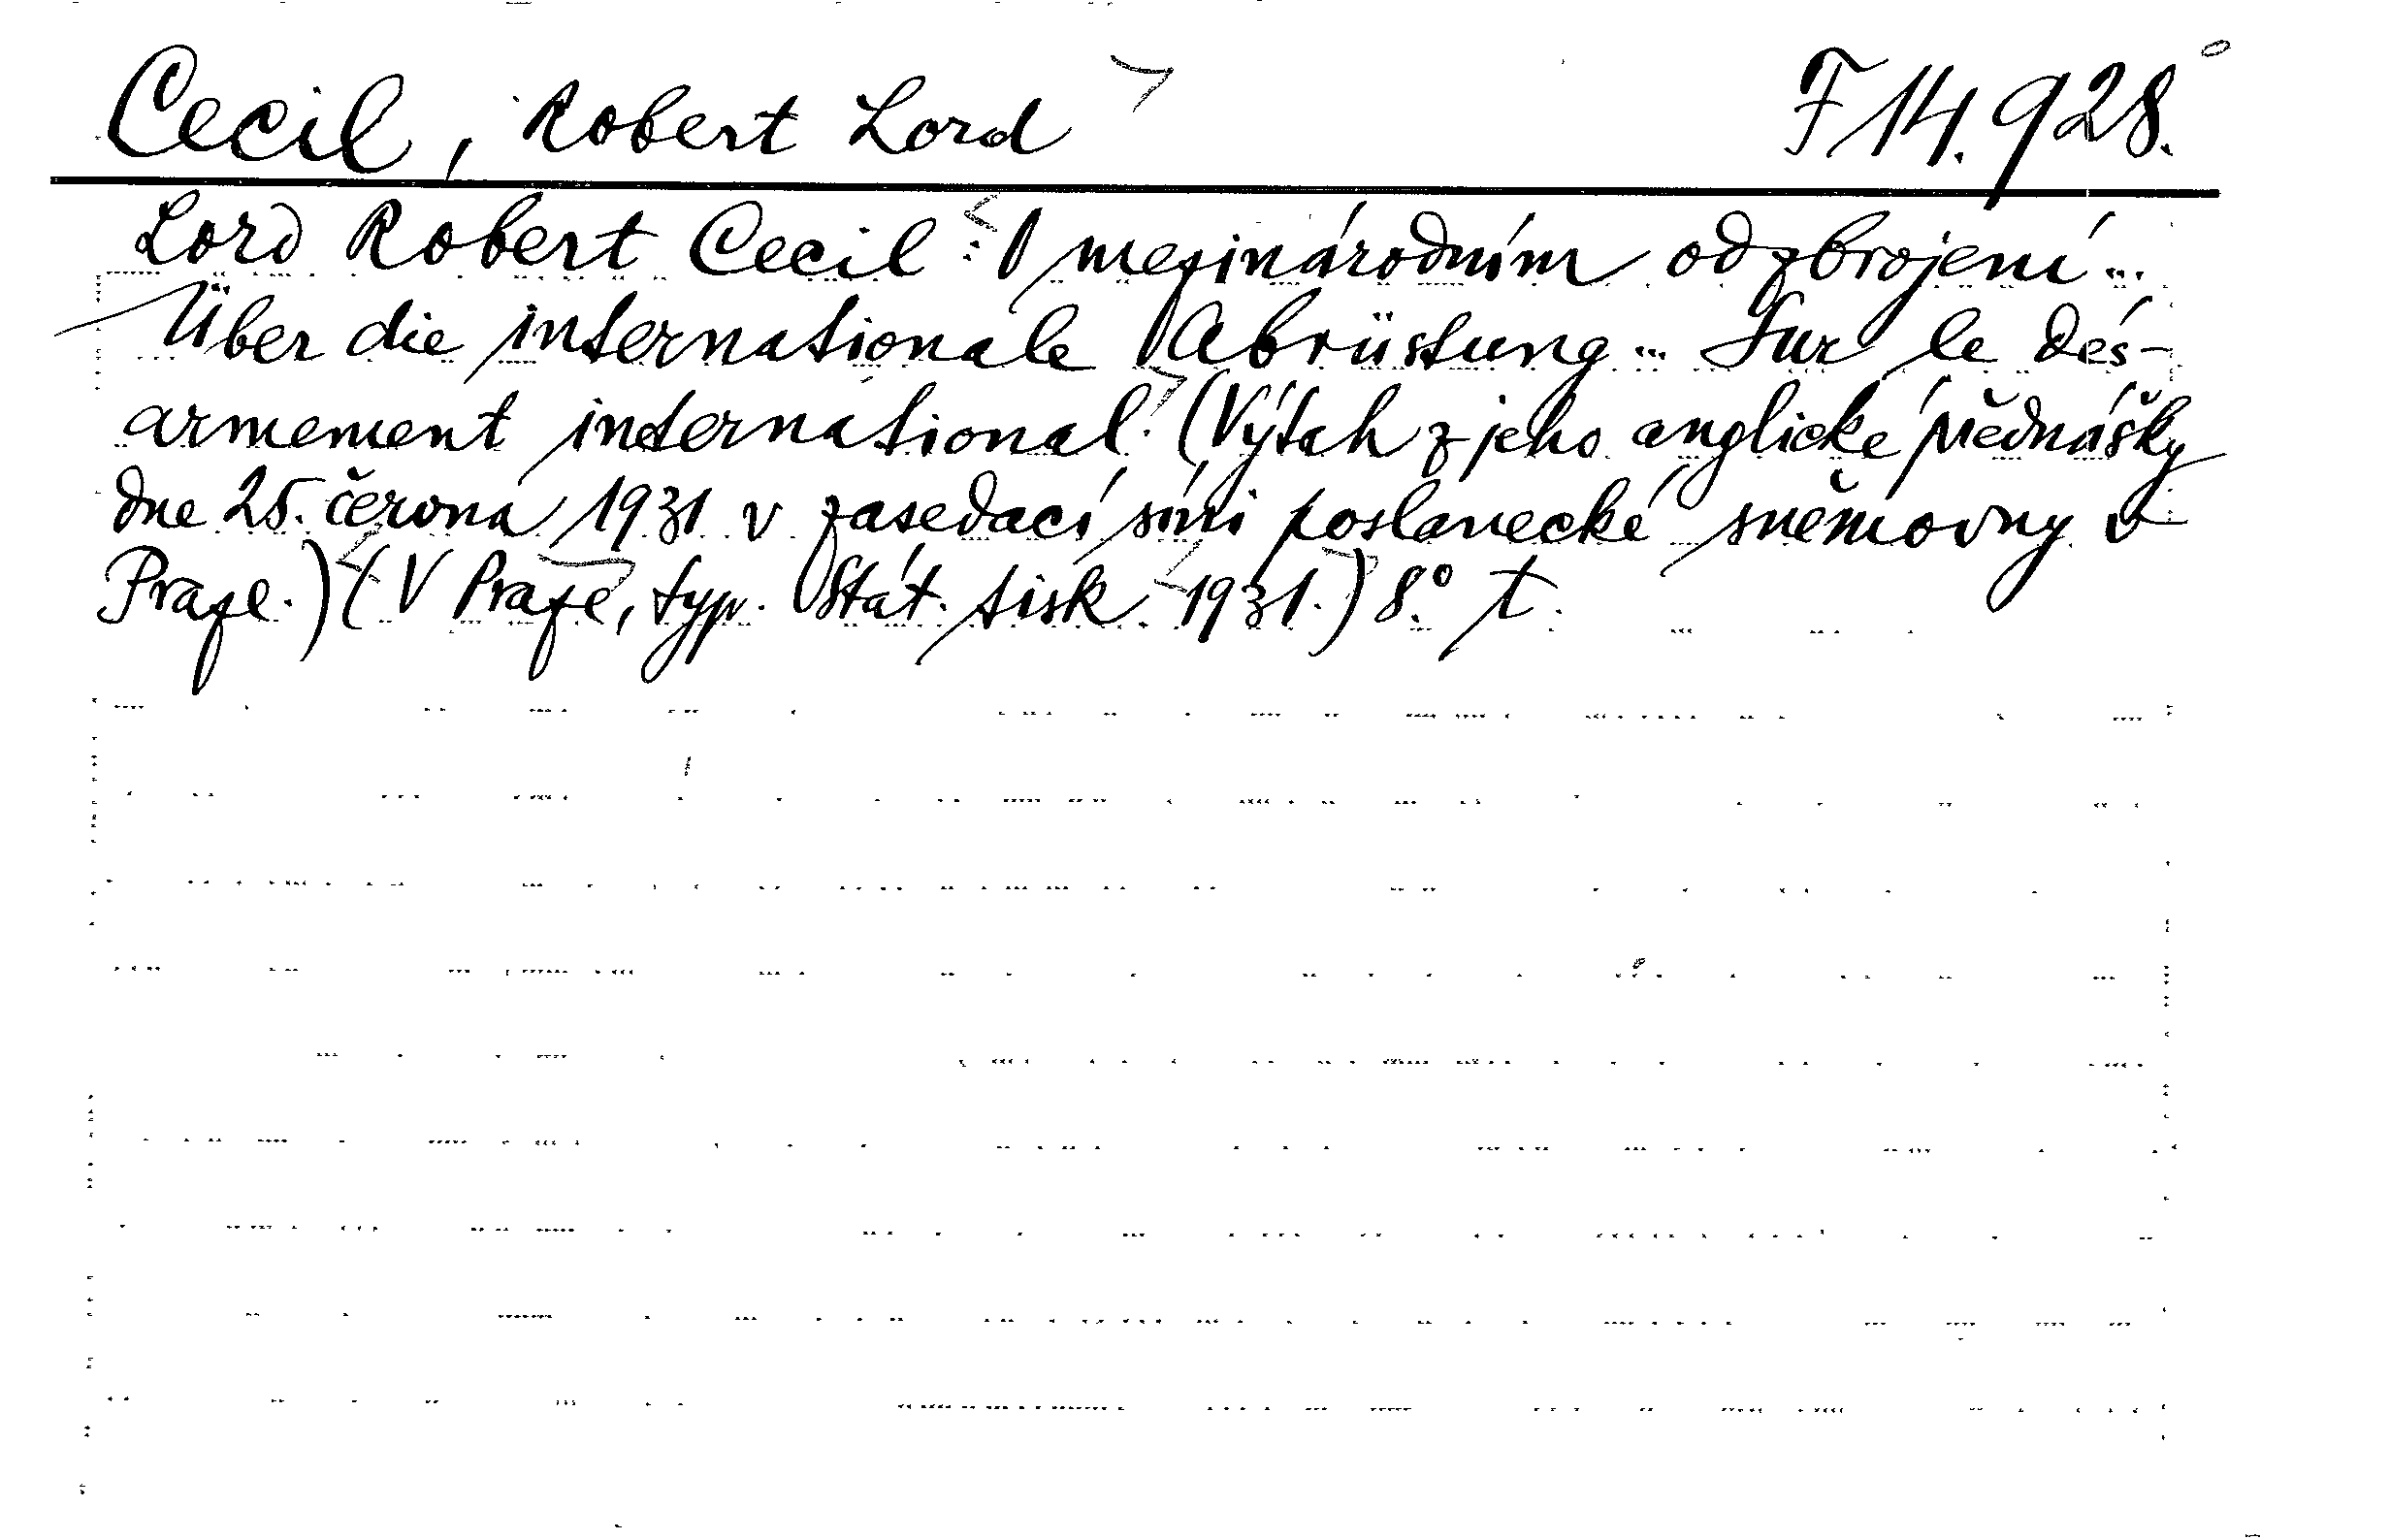 Cecil, Robert Lord F 14.928.
Lord Robert Cecil: O mezinárodním odzbrojení...
Über die internationale Abrüstung... Sur le dés-
armement international. (Výtah z jeho anglické přednášky
dne 25. června 1931 v zasedací síni poslanecké sněmovny v
Praze.) (V Praze, typ. Stát. tisk. 1931.) 8.° t.